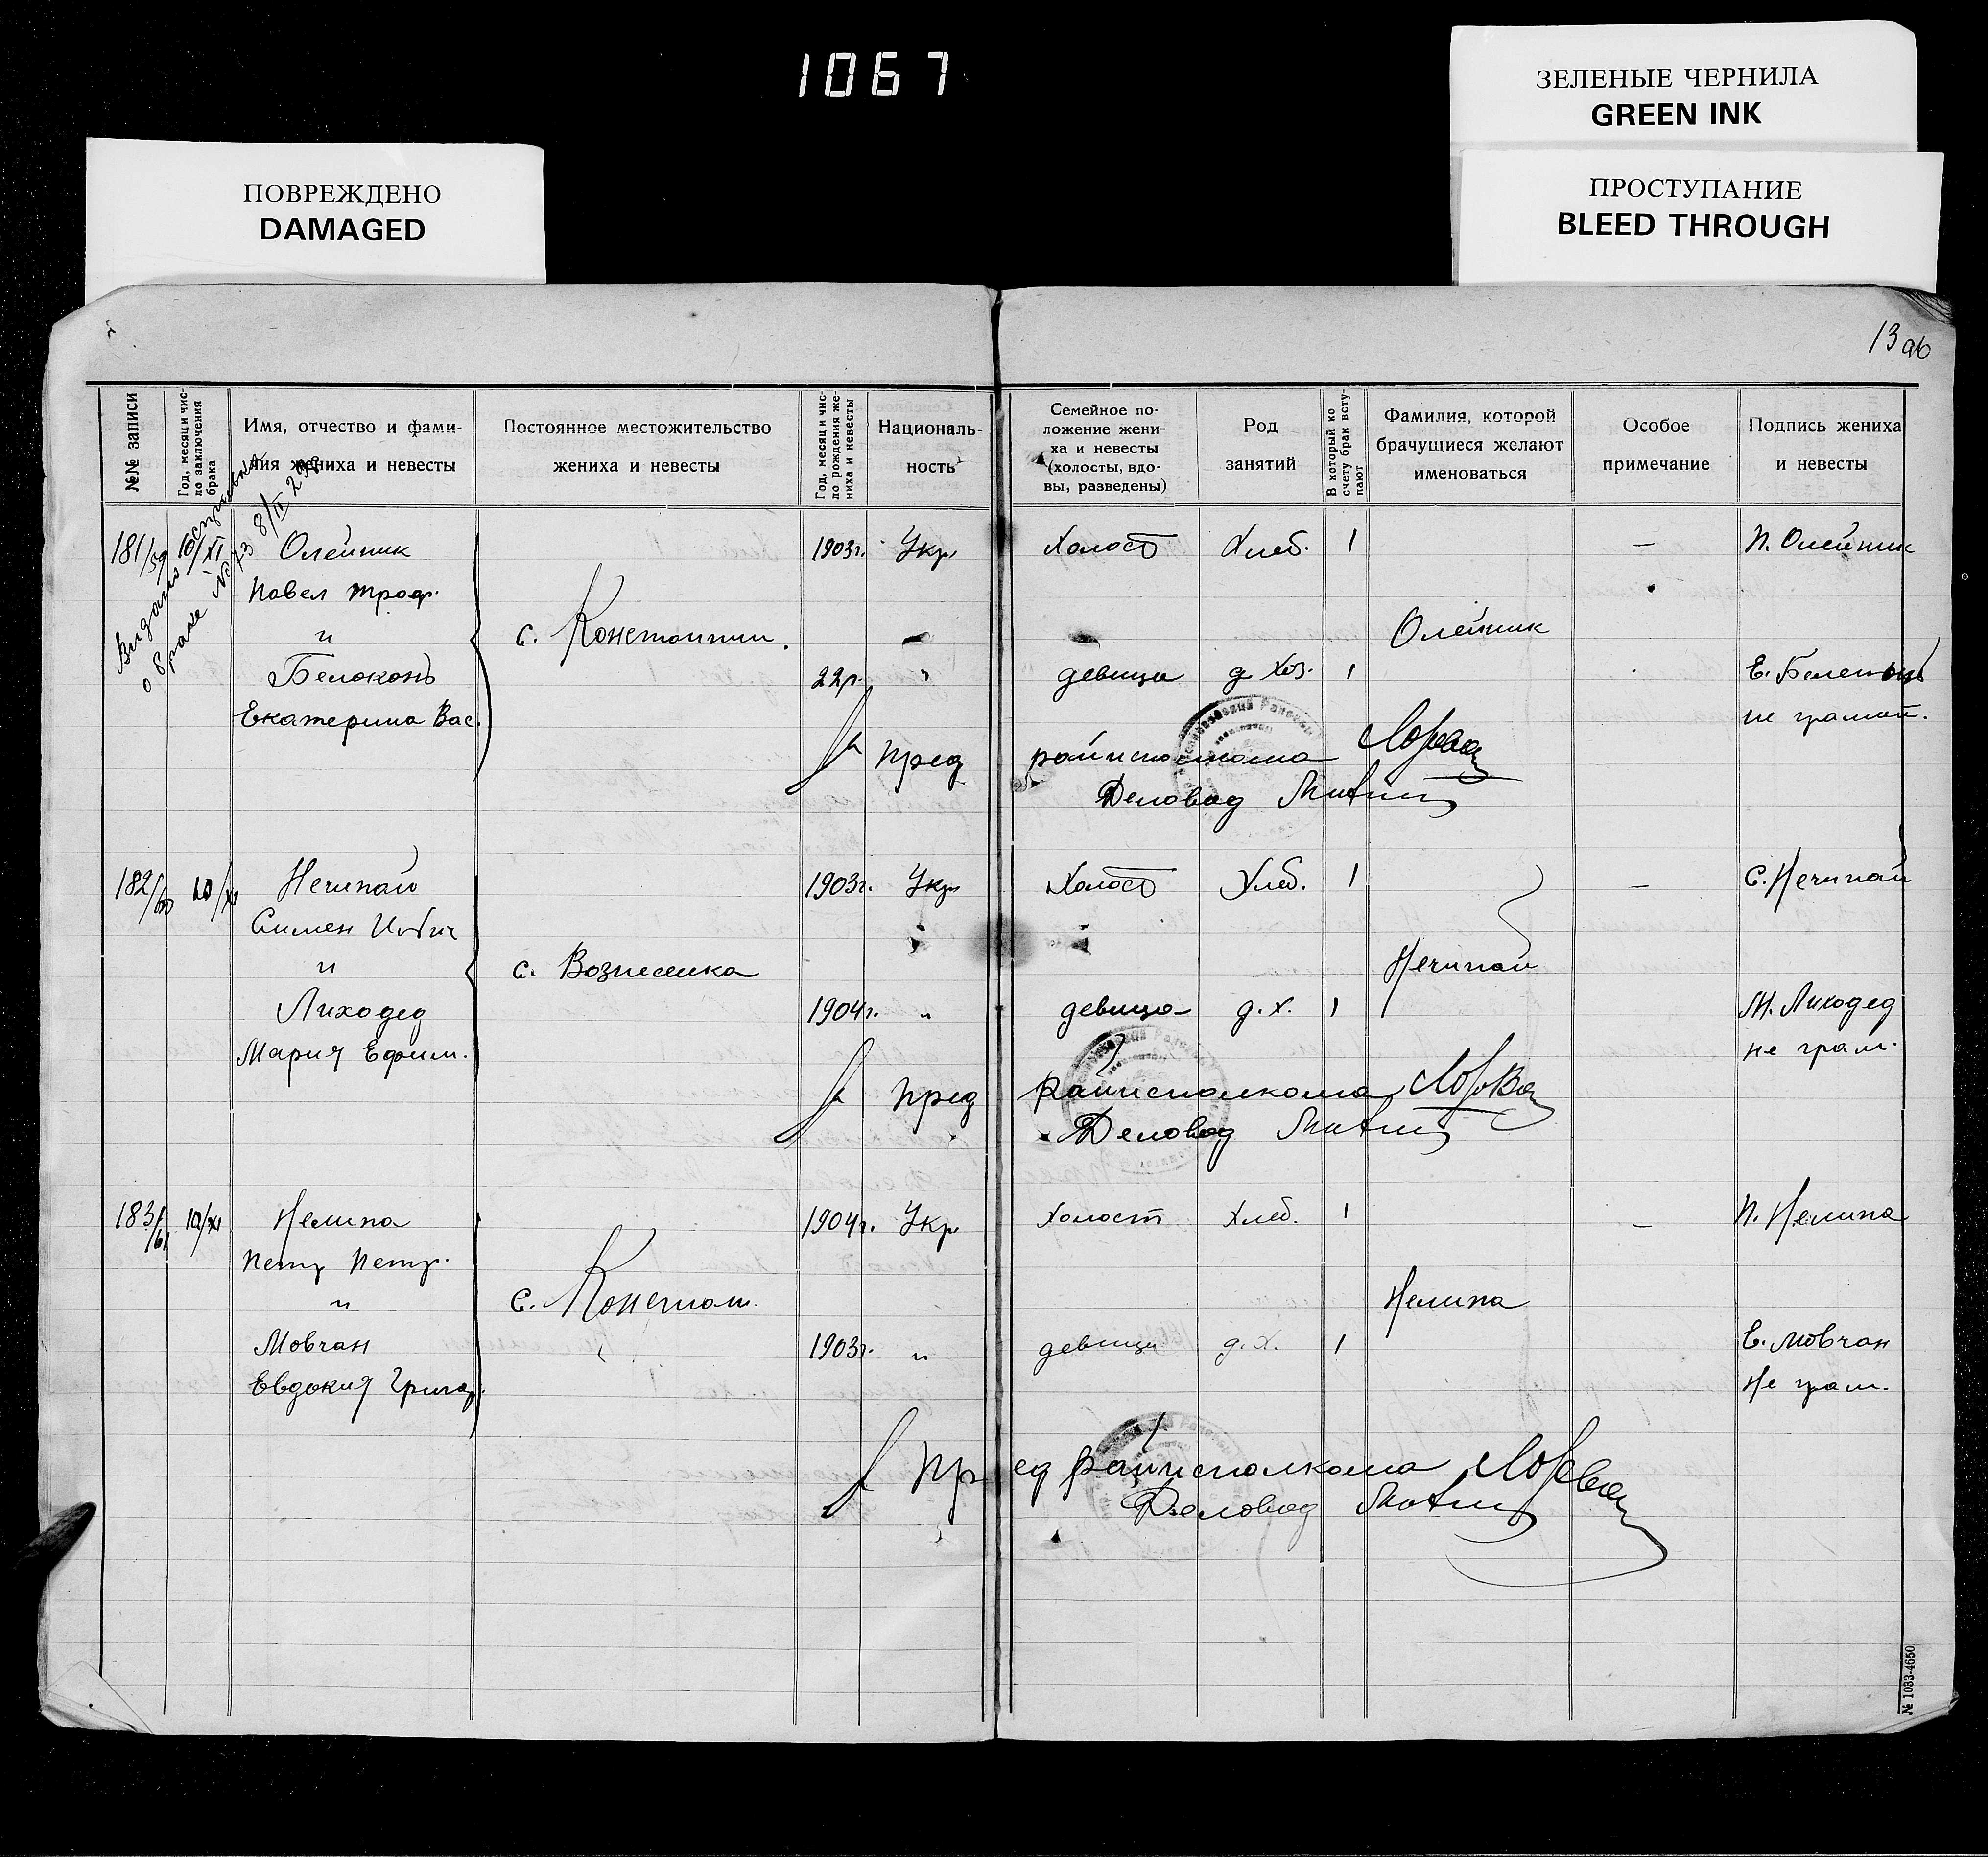 1067
ЗЕЛЕНЫЕ ЧЕРНИЛА
GREEN INK
ПОВРЕЖДЕНО
DAMAGED
ПРОСТУПАНИЕ
BLEED THROUGH
13 об
№№ записи
Год, месяц и чис-
ло заключения
брака
Имя, отчество и фами-
лия жениха и невесты
Постоянное местожительство
жениха и невесты
Год, месяц и чис-
ло рождения же-
ниха и невесты
Националь-
ность
Семейное по-
ложение жени-
ха и невесты
(холосты, вдо-
вы, разведены)
Род
занятий
В который ко
счету брак всту-
пают
Фамилия, которой
брачущиеся желают
именоваться
Особое
примечание
Подпись жениха
и невесты
о браке № 73 8/II 29
181/59 10/XI Олейник 1903г. Укр Холост Хлеб. 1 — П. Олейник
Павел Троф.
и с. Константин. Олейник
Белоконь 22р. " девица д хоз. 1 Е.
Екатерина Вас. не грамот.
Пред райисполкома
Деловод
182/60 10/XI Нечипай 1903г. Укр Холост Хлеб. 1 — С. Нечипай
Симен
и с. Вознесенка Нечипай
Лиходед 1904г. " девица д. х. 1 М. Лиходед
Мария Ефим. не грам.
Пред Райисполкома
Деловод
183/61 10/XI Нелипа 1904г. Укр Холост Хлеб. 1 — П. Нелипа
Петр Петр.
и с. Констант. Нелипа
Мовчан 1903г. " девица д. х. 1 Е. Мовчан
Евдокия Григор. Не грам.
Пред Райисполкома
Деловод
№ 1033-4650